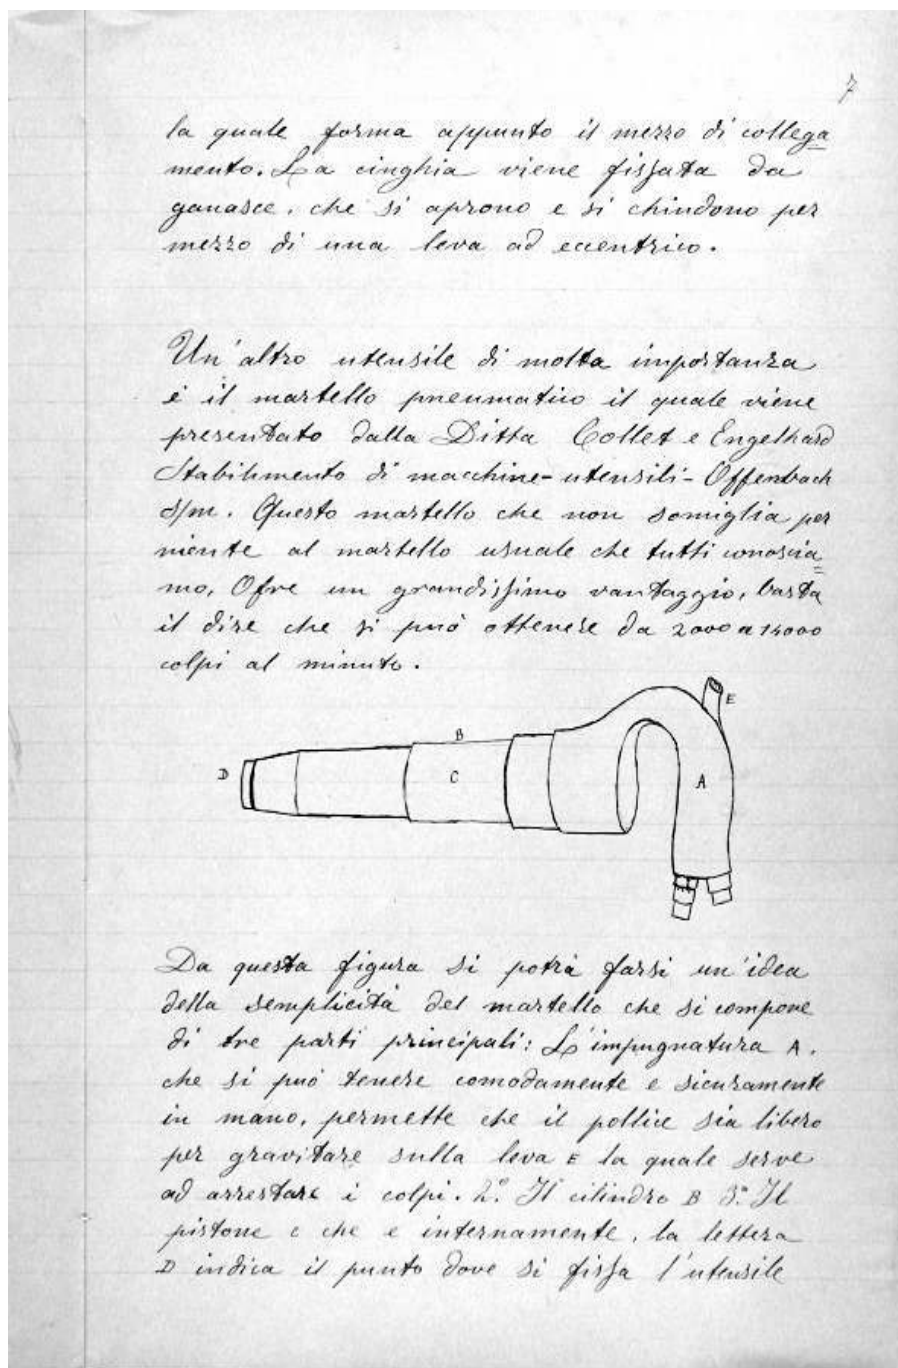 7
la quale forma appunto il mezzo di collega
mento. La cinghia viene fissata da
ganasce, che si aprono e si chiudono per
mezzo di una leva ad eccentrico.
Un'altro utensile di molta importanza
è il martello pneumatico il quale viene
presentato dalla Ditta Collet e Engelhard
Stabilimento di macchine-utensili-Offenbach
s/m. Questo martello che non somiglia per
niente al martello usuale che tutti conoscia
mo, Ofre un grandissimo vantaggio, basta
il dire che si può ottenere da 2000 a 14000
colpi al minuto.
E
B
D
C
A
Da questa figura si potrà farsi un'idea
della semplicità del martello che si compone
di tre parti principali: L'impugnatura A.
che si può tenere comodamente e sicuramente
in mano, permette che il pollice sia libero
per gravitare sulla leva E la quale serve
ad arrestare i colpi. 2.° Il cilindro B 3.° Il
pistone C che e internamente, la lettera
D indica il punto dove si fissa l'utensile